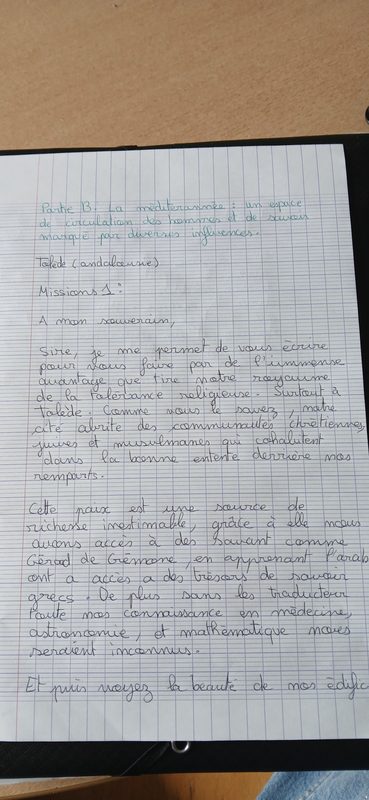 Partie B: La méditerannée: un espace
de circulation des hommes et de savoir
marqué par diverses influences.
Tolède (andalousie)
Missions 1:
A mon souverain,
Sire, je me permet de vous écrire
pour vous faire par de l'immense
avantage que tire notre royaume
de la tolérance religieuse. Surtout à
Tolède. Comme vous le savez, notre
cité abrite des communautés chrétiennes,
juives et musulmanes qui cohabitent
dans la bonne entente derrière nos
remparts.
Cette paix est une source de
richesse inestimable, grâce à elle nous
avons accès à des savant comme
Gérard de Crémone, en apprenant l'arab
ont a accès a des trésors de savoir
grecs. De plus sans les traducteur
toute nos connaissance en médecine,
astronomie, et mathématique nous
seraient inconnus.
Et puis voyez la beauté de nos édific